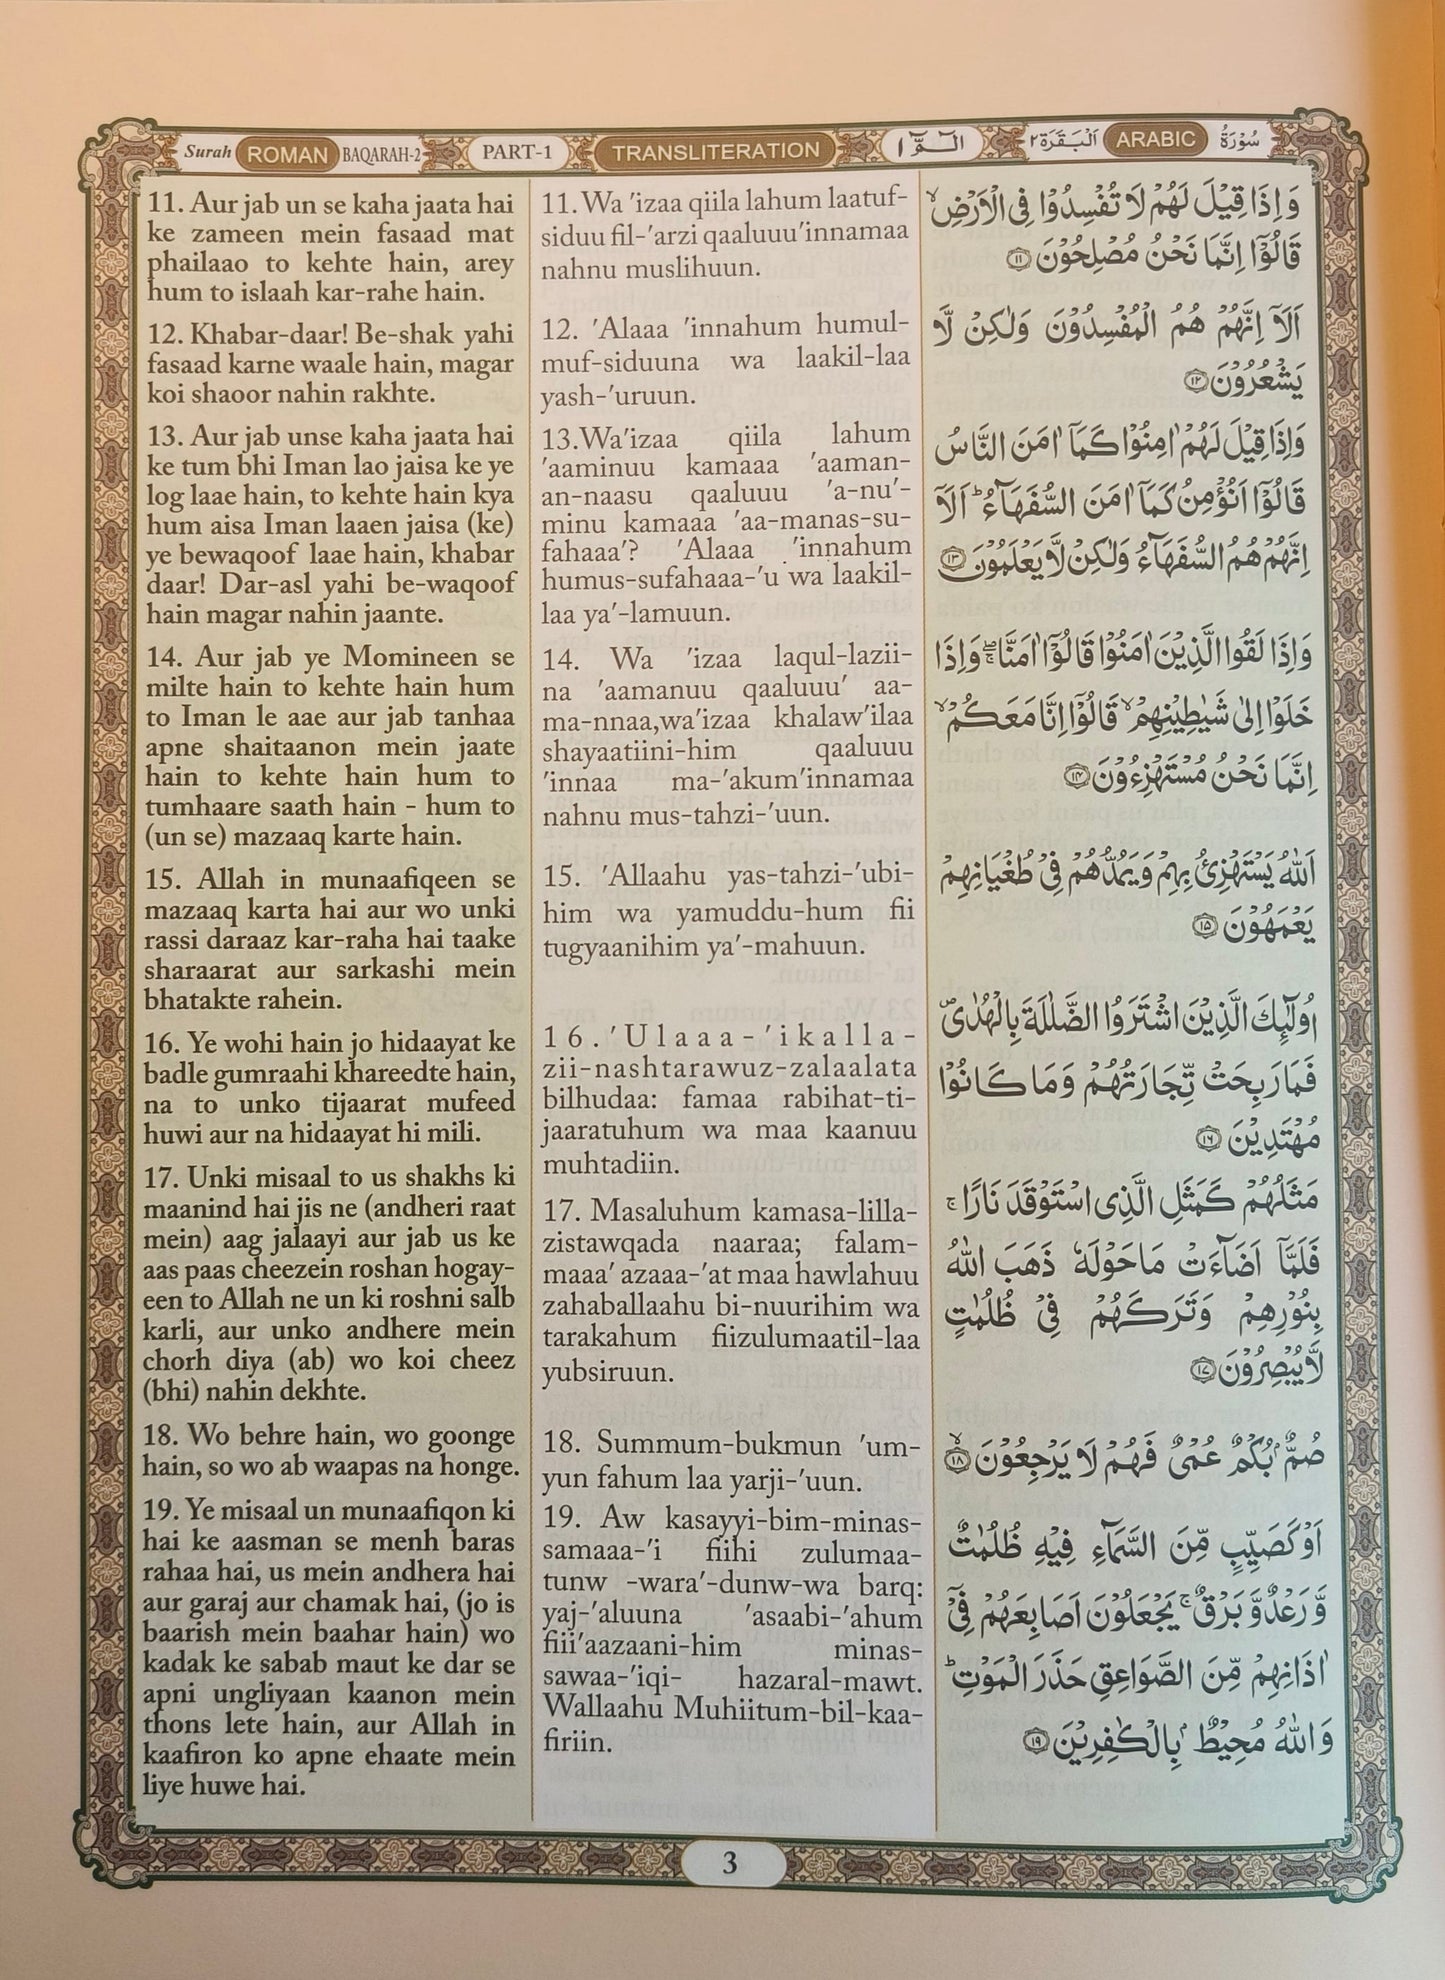 Surah ROMAN BAQARAH-2 PART-1 TRANSLITERATION الٓمّٓ ١ اَلْبَقَرَة ٢ ARABIC سُوْرَةُ
11. Aur jab un se kaha jaata hai
ke zameen mein fasaad mat
phailaao to kehte hain, arey
hum to islaah kar-rahe hain.
12. Khabar-daar! Be-shak yahi
fasaad karne waale hain, magar
koi shaoor nahin rakhte.
13. Aur jab unse kaha jaata hai
ke tum bhi Iman lao jaisa ke ye
log laae hain, to kehte hain kya
hum aisa Iman laaen jaisa (ke)
ye bewaqoof laae hain, khabar
daar! Dar-asl yahi be-waqoof
hain magar nahin jaante.
14. Aur jab ye Momineen se
milte hain to kehte hain hum
to Iman le aae aur jab tanhaa
apne shaitaanon mein jaate
hain to kehte hain hum to
tumhaare saath hain - hum to
(un se) mazaaq karte hain.
15. Allah in munaafiqeen se
mazaaq karta hai aur wo unki
rassi daraaz kar-raha hai taake
sharaarat aur sarkashi mein
bhatakte rahein.
16. Ye wohi hain jo hidaayat ke
badle gumraahi khareedte hain,
na to unko tijaarat mufeed
huwi aur na hidaayat hi mili.
17. Unki misaal to us shakhs ki
maanind hai jis ne (andheri raat
mein) aag jalaayi aur jab us ke
aas paas cheezein roshan hogay-
een to Allah ne un ki roshni salb
karli, aur unko andhere mein
chorh diya (ab) wo koi cheez
(bhi) nahin dekhte.
18. Wo behre hain, wo goonge
hain, so wo ab waapas na honge.
19. Ye misaal un munaafiqon ki
hai ke aasman se menh baras
rahaa hai, us mein andhera hai
aur garaj aur chamak hai, (jo is
baarish mein baahar hain) wo
kadak ke sabab maut ke dar se
apni ungliyaan kaanon mein
thons lete hain, aur Allah in
kaafiron ko apne ehaate mein
liye huwe hai.
11. Wa 'izaa qiila lahum laatuf-
siduu fil-'arzi qaaluuu'innamaa
nahnu muslihuun.
12. 'Alaaa 'innahum humul-
muf-siduuna wa laakil-laa
yash-'uruun.
13.Wa'izaa qiila lahum
'aaminuu kamaaa 'aaman-
an-naasu qaaluuu 'a-nu'-
minu kamaaa 'aa-manas-su-
fahaaa'? 'Alaaa 'innahum
humus-sufahaaa-'u wa laakil-
laa ya'-lamuun.
14. Wa 'izaa laqul-lazii-
na 'aamanuu qaaluuu' aa-
ma-nnaa,wa'izaa khalaw'ilaa
shayaatiini-him qaaluuu
'innaa ma-'akum'innamaa
nahnu mus-tahzi-'uun.
15. 'Allaahu yas-tahzi-'ubi-
him wa yamuddu-hum fii
tugyaanihim ya'-mahuun.
16. 'Ulaaa-'ikalla-
zii-nashtarawuz-zalaalata
bilhudaa: famaa rabihat-ti-
jaaratuhum wa maa kaanuu
muhtadiin.
17. Masaluhum kamasa-lilla-
zistawqada naaraa; falam-
maaa' azaaa-'at maa hawlahuu
zahaballaahu bi-nuurihim wa
tarakahum fiizulumaatil-laa
yubsiruun.
18. Summum-bukmun 'um-
yun fahum laa yarji-'uun.
19. Aw kasayyi-bim-minas-
samaaa-'i fiihi zulumaa-
tunw -wara'-dunw-wa barq:
yaj-'aluuna 'asaabi-'ahum
fiii'aazaani-him minas-
sawaa-'iqi- hazaral-mawt.
Wallaahu Muhiitum-bil-kaa-
firiin.
وَ اِذَا قِيْلَ لَهُمْ لَا تُفْسِدُوْا فِى الْاَرْضِ ۙ
قَالُوْۤا اِنَّمَا نَحْنُ مُصْلِحُوْنَ ۝۱۱
اَلَاۤ اِنَّهُمْ هُمُ الْمُفْسِدُوْنَ وَلٰكِنْ لَّا
يَشْعُرُوْنَ ۝۱۲
وَاِذَا قِيْلَ لَهُمْ اٰمِنُوْا كَمَاۤ اٰمَنَ النَّاسُ
قَالُوْۤا اَنُؤْمِنُ كَمَاۤ اٰمَنَ السُّفَهَآءُ ؕ اَلَاۤ
اِنَّهُمْ هُمُ السُّفَهَآءُ وَلٰكِنْ لَّا يَعْلَمُوْنَ ۝۱۳
وَاِذَا لَقُوا الَّذِيْنَ اٰمَنُوْا قَالُوْۤا اٰمَنَّا ۖۚ وَاِذَا
خَلَوْا اِلٰى شَيٰطِيْنِهِمْ ۙ قَالُوْۤا اِنَّا مَعَكُمْ ۙ
اِنَّمَا نَحْنُ مُسْتَهْزِءُوْنَ ۝۱۴
اَللّٰهُ يَسْتَهْزِئُ بِهِمْ وَيَمُدُّهُمْ فِىْ طُغْيَانِهِمْ
يَعْمَهُوْنَ ۝۱۵
اُولٰٓئِكَ الَّذِيْنَ اشْتَرَوُا الضَّلٰلَةَ بِالْهُدٰى ۪
فَمَا رَبِحَتْ تِّجَارَتُهُمْ وَمَا كَانُوْا
مُهْتَدِيْنَ ۝۱۶
مَثَلُهُمْ كَمَثَلِ الَّذِى اسْتَوْقَدَ نَارًا ۚ
فَلَمَّاۤ اَضَآءَتْ مَا حَوْلَهٗ ذَهَبَ اللّٰهُ
بِنُوْرِهِمْ وَتَرَكَهُمْ فِىْ ظُلُمٰتٍ
لَّا يُبْصِرُوْنَ ۝۱۷
صُمٌّۢ بُكْمٌ عُمْىٌ فَهُمْ لَا يَرْجِعُوْنَ ۙ ۝۱۸
اَوْ كَصَيِّبٍ مِّنَ السَّمَآءِ فِيْهِ ظُلُمٰتٌ
وَّ رَعْدٌ وَّ بَرْقٌ ۚ يَجْعَلُوْنَ اَصَابِعَهُمْ فِىْۤ
اٰذَانِهِمْ مِّنَ الصَّوَاعِقِ حَذَرَ الْمَوْتِ ؕ
وَاللّٰهُ مُحِيْطٌۢ بِالْكٰفِرِيْنَ ۝۱۹
3